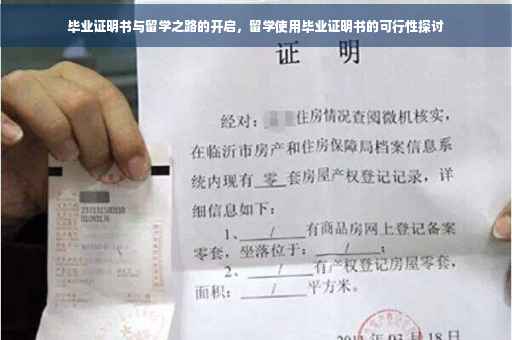 毕业证明书与留学之路的开启，留学使用毕业证明书的可行性探讨
证 明
经对： 住房情况查阅微机核实，
在临沂市房产和住房保障局档案信息系
统内现有 零 套房屋产权登记记录，详
细信息如下：
1、 / 有商品房网上登记备案
零套，坐落位于： / ；
2、 / 有产权登记房屋零套，
面积： / 平方米。
03 月 18 日